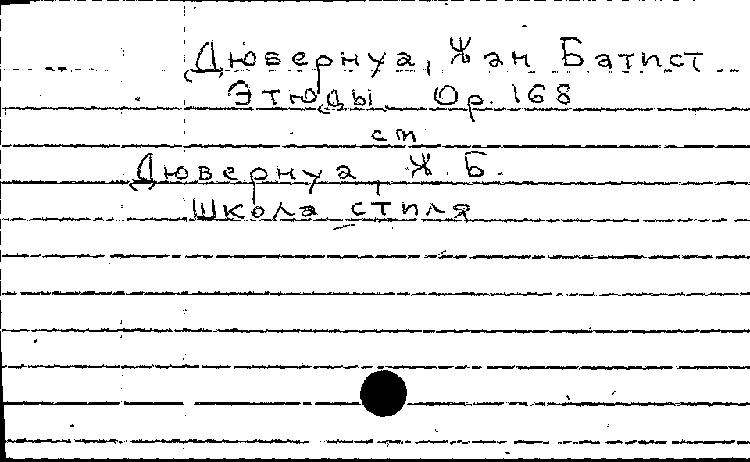 Дювернуа, Жан Батист
Этюды. Ор. 168
см
Дювернуа, Ж. Б.
Школа стиля